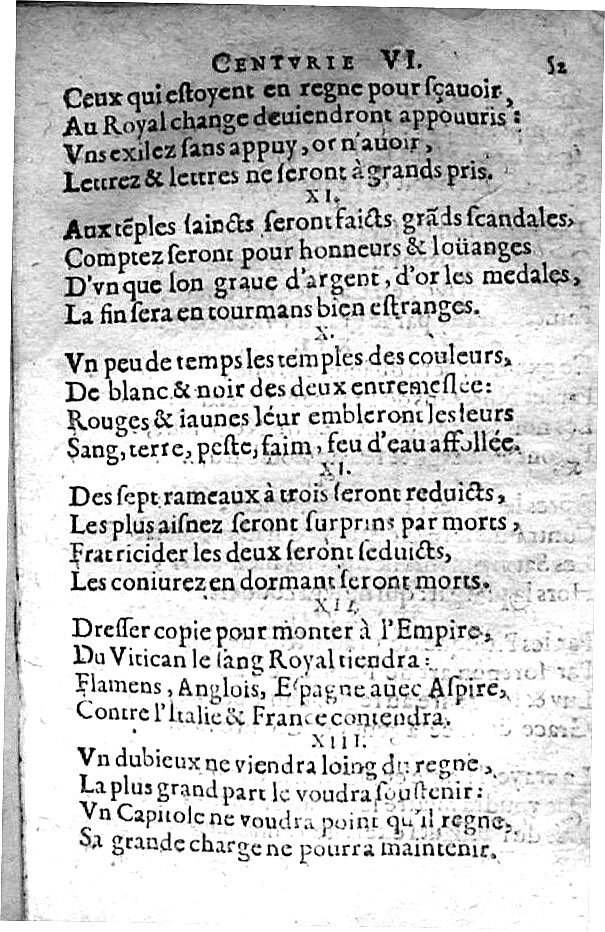 CENTVRIE VI. 52
Ceux qui eſtoyent en regne pour ſçauoir,
Au Royal change deuiendront appouuris:
Vns exilez ſans appuy, or n'auoir,
Lettrez & lettres ne ſeront à grands pris.
XI.
Aux tẽples ſaincts ſeront faicts grãds ſcandales,
Comptez ſeront pour honneurs & loüanges
D'vn que lon graue d'argent, d'or les medales,
La fin ſera en tourmans bien eſtranges.
X.
Vn peu de temps les temples des couleurs,
De blanc & noir des deux entremeſlée:
Rouges & iaunes léur embleront les leurs
Sang, terre, peſte, faim, feu d'eau affollée.
XI.
Des ſept rameaux à trois ſeront reduicts,
Les plus aiſnez ſeront ſurprins par morts,
Fratricider les deux ſeront ſeduicts,
Les coniurez en dormant ſeront morts.
XII.
Dreſſer copie pour monter à l'Empire,
Du Vitican le ſang Royal tiendra:
Flamens, Anglois, Eſpagne auec Aſpire,
Contre l'Italie & France contendra.
XIII.
Vn dubieux ne viendra loing du regne,
La plus grand part le voudra ſouſtenir:
Vn Capitole ne voudra point qu'il regne,
Sa grande charge ne pourra maintenir.